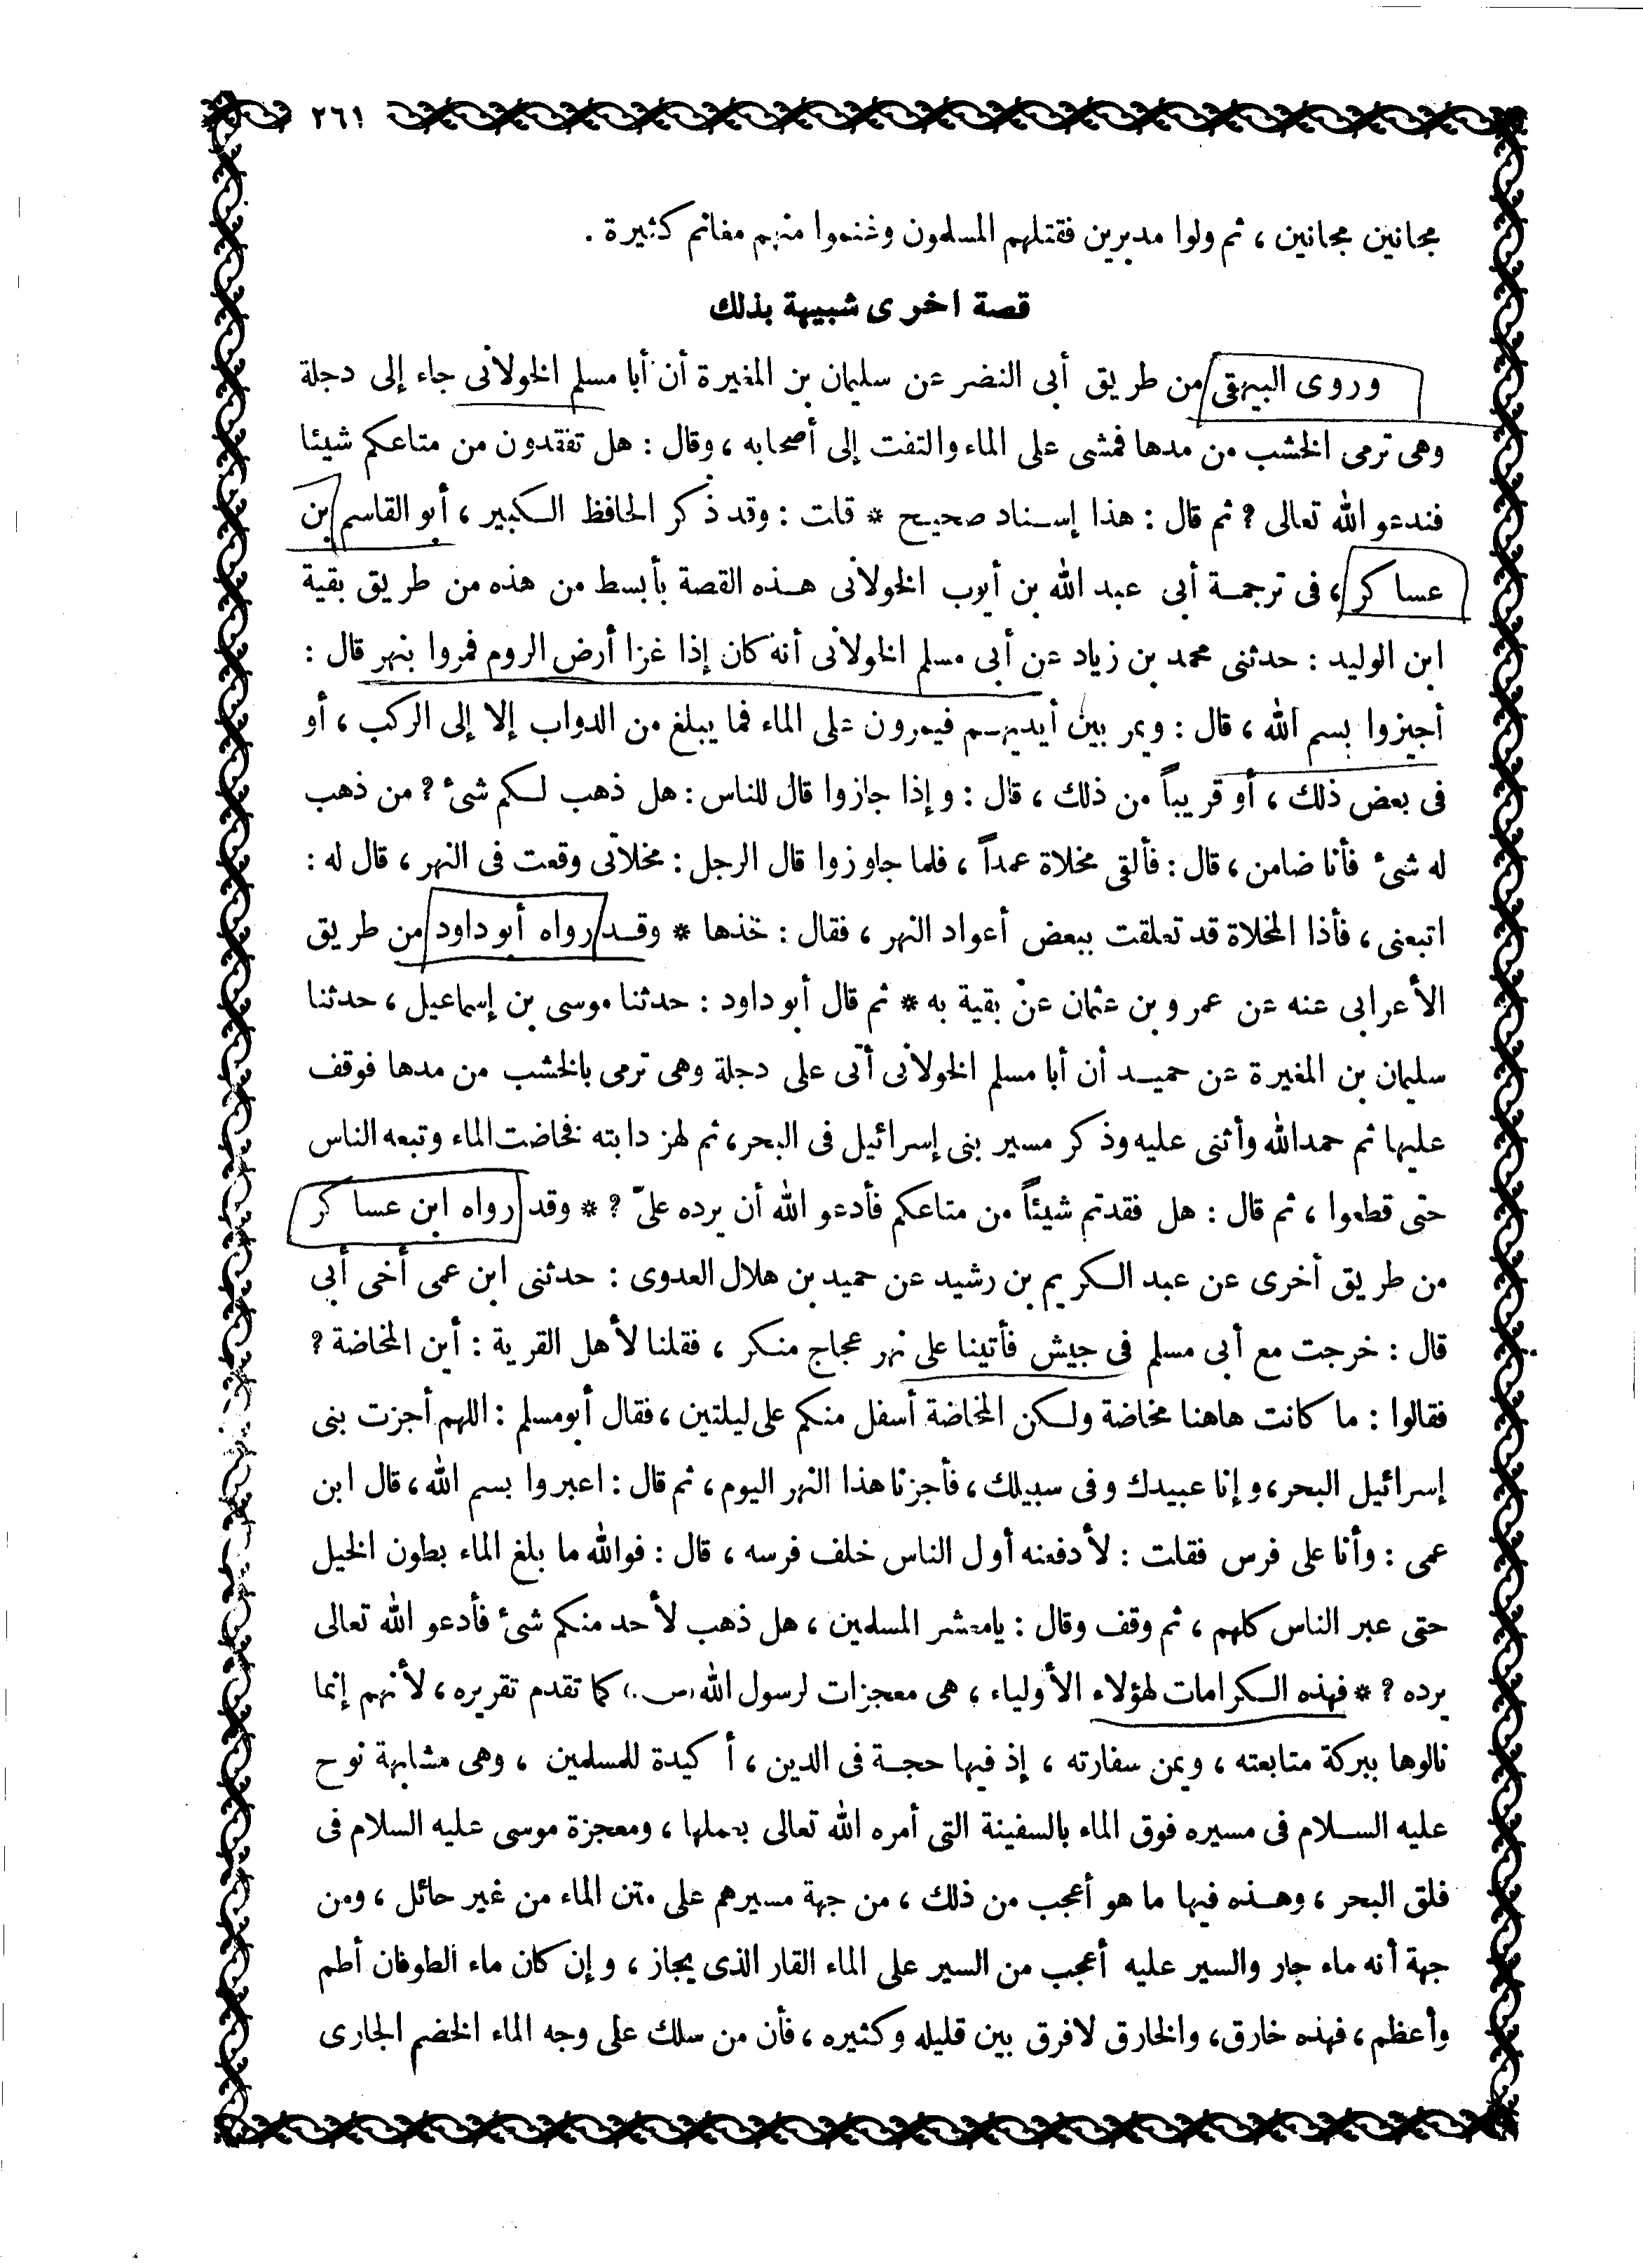 ٢٦١
مجانين مجانين ، ثم ولوا مدبرين فقتلهم المسلمون وغنموا منهم مغانم كثيرة .
قصة اخرى شبيهة بذلك
وروى البيهقى من طريق أبى النضر عن سليمان بن المغيرة أن أبا مسلم الخولانى جاء إلى دجلة
وهى ترمى الخشب من مدها فمشى على الماء والتفت إلى أصحابه ، وقال : هل تفقدون من متاعكم شيئا
فندعو الله تعالى ? ثم قال : هذا إسناد صحيح * قلت : وقد ذكر الحافظ الكبير ، أبو القاسم بن
عساكر ، فى ترجمة أبى عبد الله بن أيوب الخولانى هذه القصة بأبسط من هذه من طريق بقية
ابن الوليد : حدثنى محمد بن زياد عن أبى مسلم الخولانى أنه كان إذا غزا أرض الروم فمروا بنهر قال :
أجيزوا بسم الله ، قال : ويمر بين أيديهم فيمرون على الماء فما يبلغ من الدواب إلا إلى الركب ، أو
فى بعض ذلك ، أو قريباً من ذلك ، قال : وإذا جازوا قال للناس : هل ذهب لكم شئ ? من ذهب
له شئ فأنا ضامن ، قال : فألقى مخلاة عمداً ، فلما جاوزوا قال الرجل : مخلاتى وقعت فى النهر ، قال له :
اتبعنى ، فأذا المخلاة قد تعلقت ببعض أعواد النهر ، فقال : خذها * وقد رواه أبو داود من طريق
الأعرابى عنه عن عمرو بن عثمان عن بقية به * ثم قال أبو داود : حدثنا موسى بن إسماعيل ، حدثنا
سليمان بن المغيرة عن حميد أن أبا مسلم الخولانى أتى على دجلة وهى ترمى بالخشب من مدها فوقف
عليها ثم حمدالله وأثنى عليه وذكر مسير بنى إسرائيل فى البحر ، ثم لهز دابته فخاضت الماء وتبعه الناس
حتى قطعوا ، ثم قال : هل فقدتم شيئاً من متاعكم فأدعو الله أن يرده علىّ ? * وقد رواه ابن عساكر
من طريق أخرى عن عبد الكريم بن رشيد عن حميد بن هلال العدوى : حدثنى ابن عمى أخى أبى
قال : خرجت مع أبى مسلم فى جيش فأتينا على نهر عجاج منكر ، فقلنا لأهل القرية : أين المخاضة ?
فقالوا : ما كانت هاهنا مخاضة ولكن المخاضة أسفل منكم على ليلتين ، فقال أبو مسلم : اللهم أجزت بنى
إسرائيل البحر ، وإنا عبيدك وفى سبيلك ، فأجزنا هذا النهر اليوم ، ثم قال : اعبروا بسم الله ، قال ابن
عمى : وأنا على فرس فقلت : لأدفعنه أول الناس خلف فرسه ، قال : فوالله ما بلغ الماء بطون الخيل
حتى عبر الناس كلهم ، ثم وقف وقال : يامعشر المسلمين ، هل ذهب لأحد منكم شئ فأدعو الله تعالى
يرده ? * فهذه الكرامات لهؤلاء الأولياء ، هى معجزات لرسول الله (ص.) كما تقدم تقريره ، لأنهم إنما
نالوها ببركة متابعته ، ويمن سفارته ، إذ فيها حجة فى الدين ، أكيدة للمسلمين ، وهى مشابهة نوح
عليه السلام فى مسيره فوق الماء بالسفينة التى أمره الله تعالى بعملها ، ومعجزة موسى عليه السلام فى
فلق البحر ، وهذه فيها ما هو أعجب من ذلك ، من جهة مسيرهم على متن الماء من غير حائل ، ومن
جهة أنه ماء جار والسير عليه أعجب من السير على الماء القار الذى يجاز ، وإن كان ماء الطوفان أطم
وأعظم ، فهذه خارق ، والخارق لافرق بين قليله وكثيره ، فأن من سلك على وجه الماء الخضم الجارى